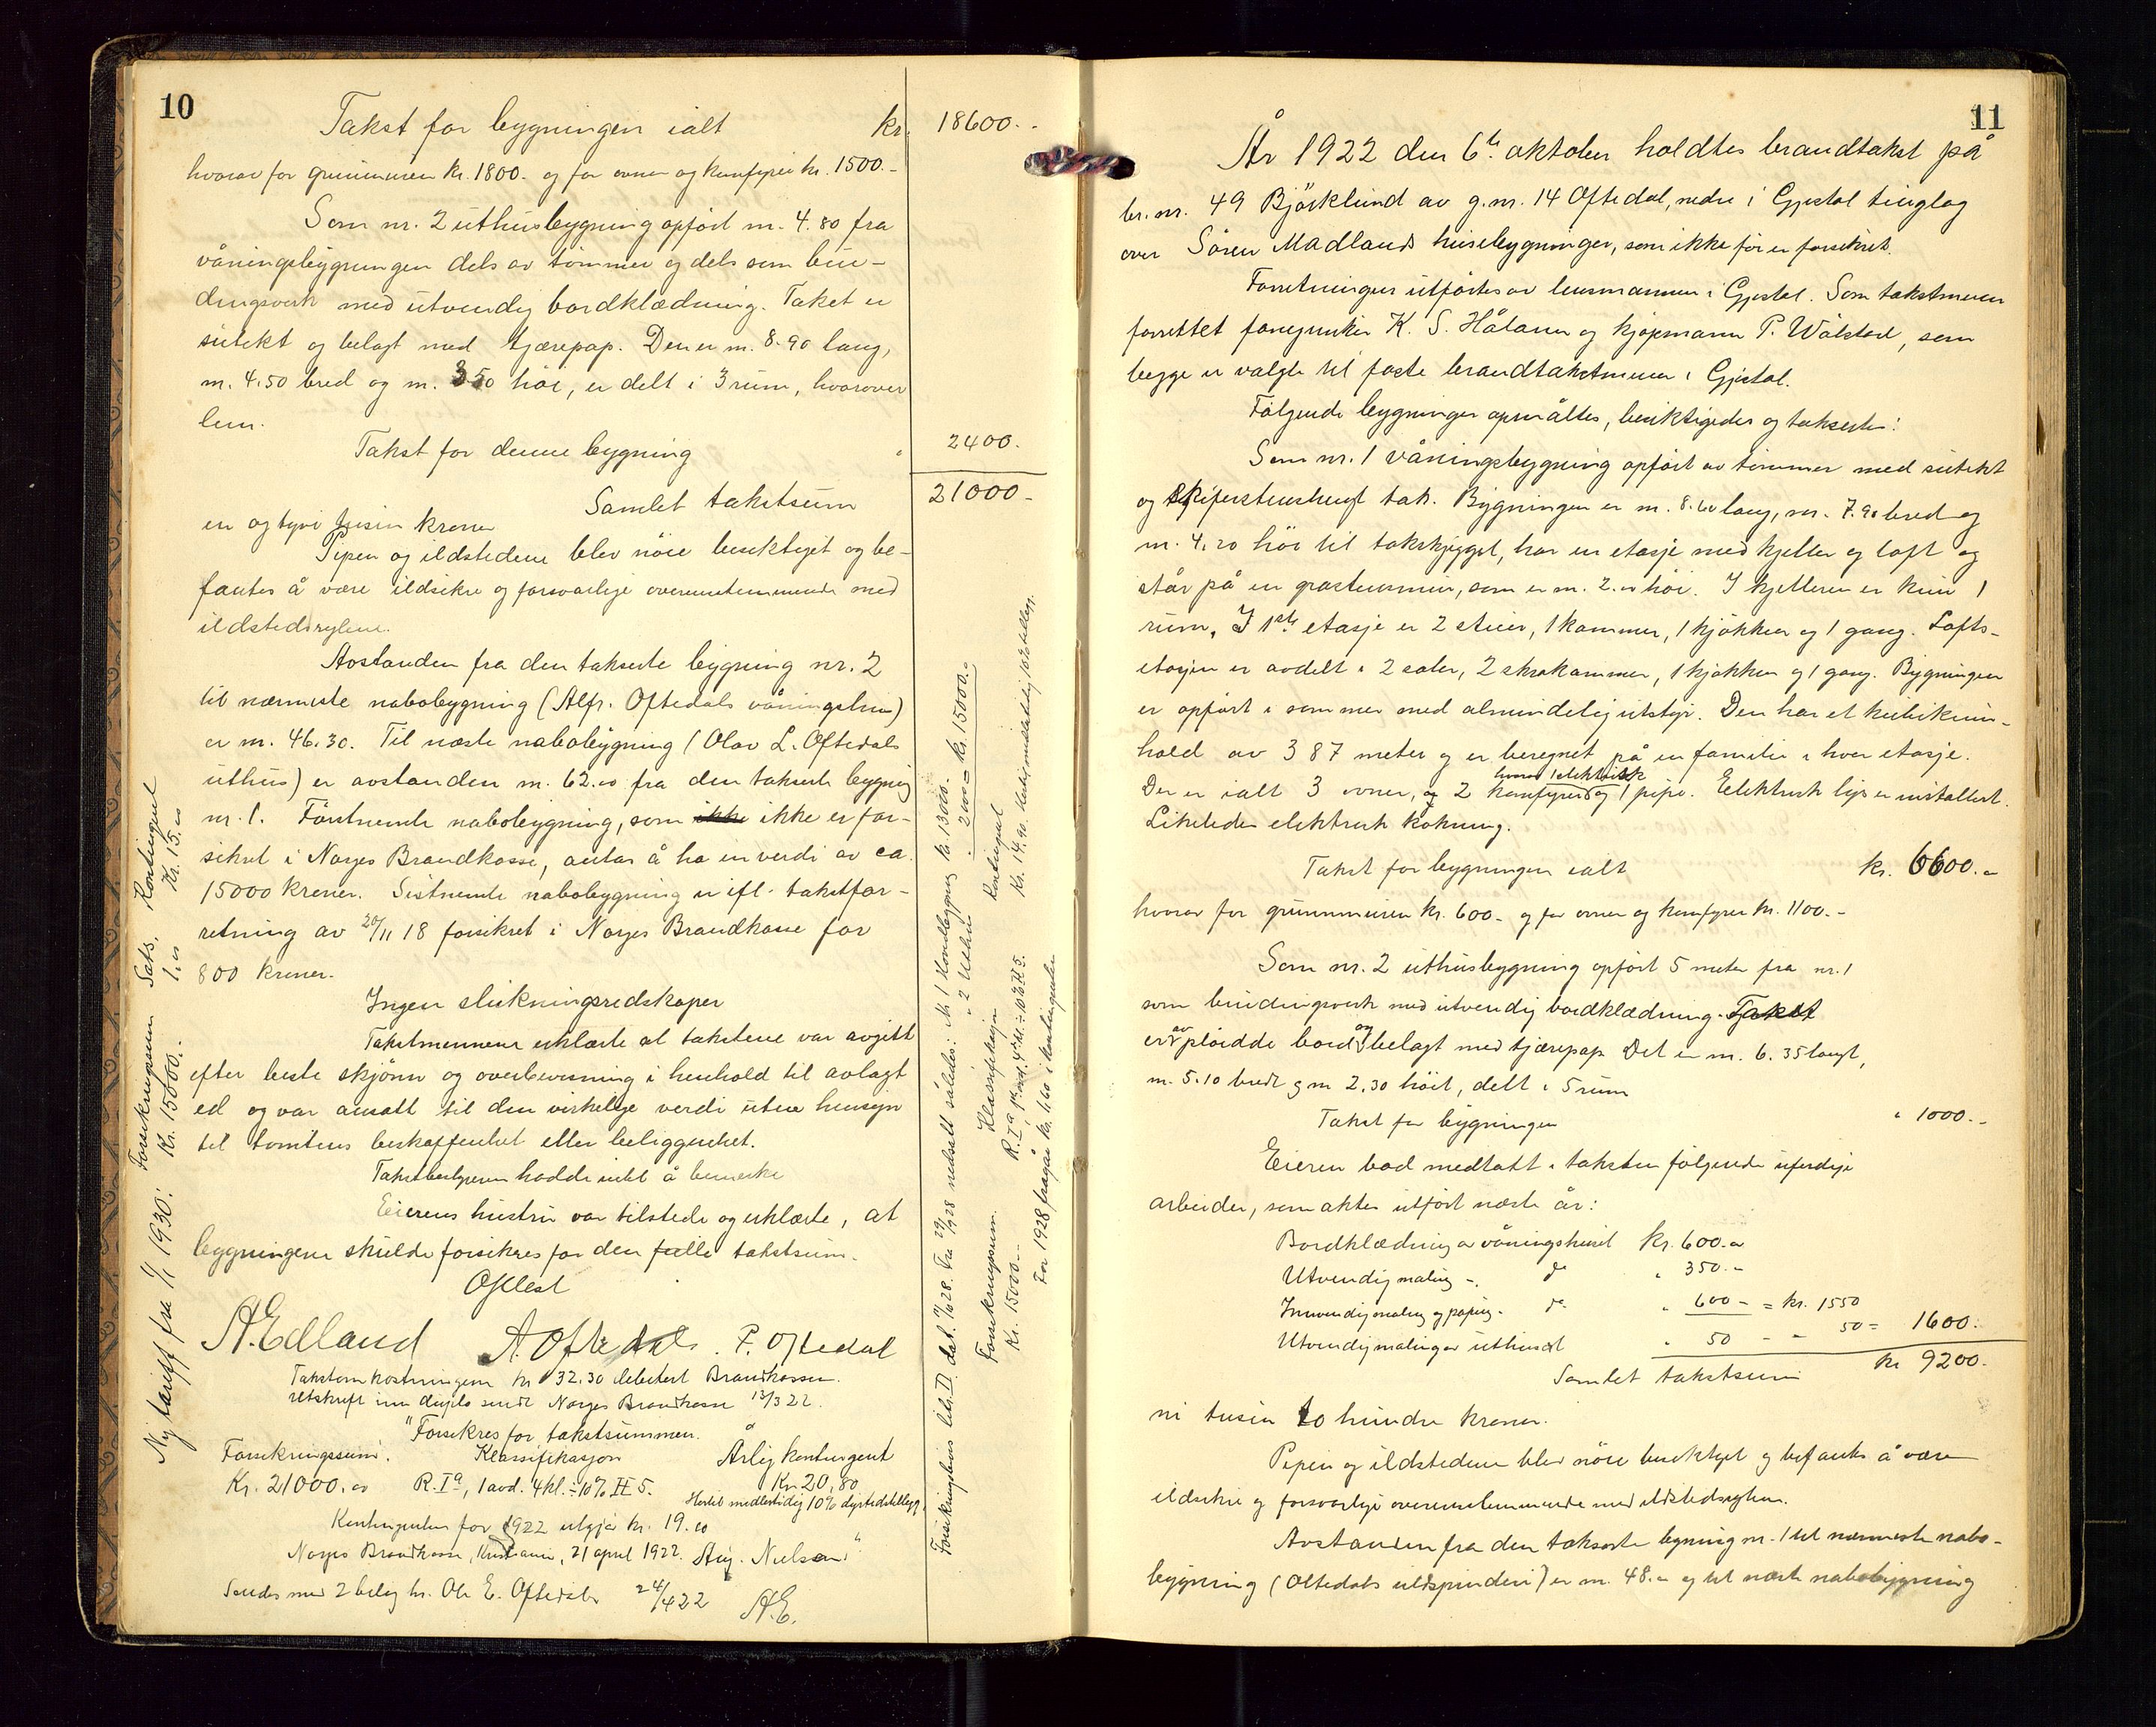 10
Takst for bygningen ialt kr. 18600.-
hvorav for grunmuren kr. 1800.- og for ovner og komfyrer kr. 1500.-
Som nr. 2 uthusbygning opført m. 4.80 fra
våningsbygningen dels av tømmer og dels som bin-
dingsverk med utvendig bordklædning. Taket er
sutekt og belagt med tjærepap. Den er m. 8.90 lang,
m. 4.50 bred og m. 3.50 høi, er delt i 3 rum, hvorover
lem.
Takst for denne bygning " 2400.-
Samlet takstsum 21000.-
en og tyve tusin kroner
Pipen og ildstedene blev nöie besiktiget og be-
fantes å være ildsikre og forsvarlige overensstemmende med
ildstedsreglene.
Avstanden fra den takserte bygning nr. 2
til nærmeste nabobygning (Alfr. Oftedals våningshus)
er m. 46.30. Til næste nabobygning (Olav L. Oftedals
uthus) er avstanden m. 62.00 fra den takserte bygning
nr. 1. Förstnevnte nabobygning, som ikke ikke er for-
sikret i Norges Brandkasse, antas å ha en verdi av ca.
15000 kroner. Sistnevnte nabobygning er ifl. takstfor-
retning av 20/11 18 forsikret i Norges Brandkasse for
800 kroner.
Ingen slukningsredskaper
Takstmennene erklærte at takstene var avgitt
efter beste skjønn og overbevisning i henhold til avlagt
ed og var ansatt til den virkelige verdi uten hensyn
til tomtens beskaffenhet eller beliggenhet.
Takstbestyreren hadde intet å bemerke
Eierens hustru var tilstede og erklærte, at
bygningene skulde forsikres for den fulle takstsum.
Oplest
A. Edland A. Oftedal. P. Oftedal
Takstomkostningene kr 32.30 debitert Brandkassen.
Utskrift inn duplo sendt Norges Brandkasse 13/3 22.
"Forsikres for takstsummen.
Forsikringssum. Klassifikasjon Årlig kontingent
Kr. 21000.00 R. Ia, 1 avd. 4 kl. ÷ 10% II 5. Kr. 20,80
Hertil midlertidig 10% dyrtidstillegg.
Kontingenten for 1922 utgjør kr. 19.00
Norges Brandkasse, Kristiania, 21 april 1922. Aug. Nielsen"
Sendes med 2 bilag hr. Ole E. Oftedal 24/4 22 A.E.
Ny tariff fra 1/1 1930: Forsikringssum Kr. 15000.- Sats. 1.00 Kontingent Kr. 15.00
Forsikringsbevis litr. D. dat. 28. Fra 29/9 28 nedsatt således: Nr 1 Våningsbygning kr. 13000.-
" 2 Uthus " 2000 = kr. 15000.-
Forsikringssum. Klassifikasjon Kontingent
Kr. 15000.- R. Ia 1ste avd. 4 kl. ÷ 10% II 5. Kr. 14.90. Hertil midlertidig 10% tillegg.
For 1928 fragår kr. 1,60 i kontingenten
11
År 1922 den 6te oktober holdtes brandtakst på
br. nr. 49 Björklund av g. nr. 14 Oftedal, nedre i Gjestal tinglag
over Sören Madlands husebygninger, som ikke før er forsikret.
Forretningen utførtes av lensmannen i Gjestal. Som takstmenn
forrettet K. S. Håland og kjøpmann P. Wålstad, som
begge er valgte til faste brandtakstmenn i Gjestal.
Følgende bygninger opmåltes, besiktigedes og taksertes:
Som nr. 1 våningsbygning opført av tømmer med sutekt
og skiferstenshengt tak. Bygningen er m. 8.60 lang, m. 7.90 bred og
m. 4.20 höi til takskjegget, har en etasje med kjeller og loft og
står på en gråstensmur, som er m. 2.00 höi. I kjelleren er kun 1
rum. I 1ste etasje er 2 stuer, 1 kammer, 1 kjøkken og 1 gang. Lofts-
etasjen er avdelt i 2 saler, 2 skråkammer, 1 kjøkken og 1 gang. Bygningen
er opført i sommer med almindelig utstyr. Den har et kubikkinn-
hold av 387 meter og er beregnet på en familie i hver etasje.
Der er ialt 3 ovner, og 2 komfyrer hvorav 1 elektrisk og 1 pipe. Elektrisk lys er installert.
Likeledes elektrisk kokning.
Takst for bygningen ialt kr. 6600.-
hvorav for grunnmuren kr. 600.- og for ovner og komfyrer kr. 1100.-
Som nr. 2 uthusbygning opført 5 meter fra nr. 1
som bindingsverk med utvendig bordklædning. Taket
er av plöidde bord og belagt med tjærepap. Det er m. 6.35 langt,
m. 5.10 bredt og m 2.30 höit, delt i 5 rum
Takst for bygningen " 1000.-
Eieren bad medtatt i taksten følgende uferdige
arbeider, som aktes utført næste år:
Bordklædning av våningshuset kr. 600.-
Utvendig maling -. do " 350.-
Innvendig maling og papng - do " 600 - = kr. 1550
Utvendig maling av uthuset " 50 - - 50 = 1600.-
Samlet takstsum kr 9200.-
ni tusin to hundre kroner.
Pipen og ildstedene blev nöie besiktiget og befantes å være
ildsikre og forsvarlige overensstemmende med ildstedsreglene.
Avstanden fra den takserte bygning nr. 1 til nærmeste nabo-
bygning (Oltedals uldspinderi) er m. 48.00 og til næste nabobygning